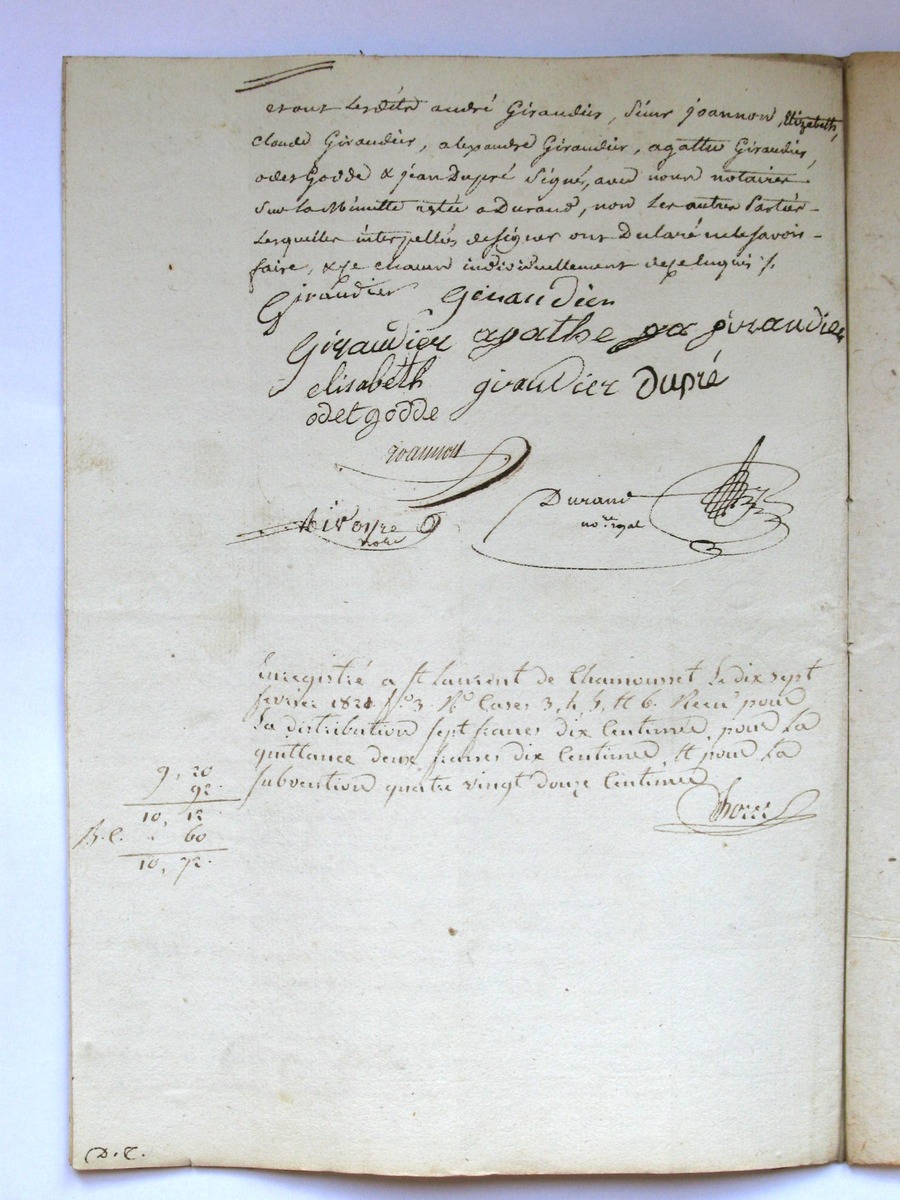 et ont lesdits andré Giraudier, Sieur joannon, Elizabeth,
claude Giraudier, alexandre Giraudier, agathe Giraudier,
odet Godde & jean Dupré Signé, avec nous notaires
Sur la Minutte restée a Durand, non Les autres Parties
Lesquelles interpellés de signer ont Declaré ne le Savoir
faire, & ce chacun individuellement de ce enquis /.
Giraudier Geraudier
Giraudier agathe giraudier
elisabeth giraudier Dupré
odet godde
joannon
Durand
no.re royal
notre
Enregistré a St Laurent de Chamousset Le dix sept
fevrier 1821 f.o 3. R.o Cases 3, 4, 5, et 6. Recu pour
La distribution sept francs dix Centimes, pour La
quittance deux francs dix Centimes, et pour La
subvention quatre vingt douze Centimes
9, 20
92
10, 12
60
10, 72.
D. C.